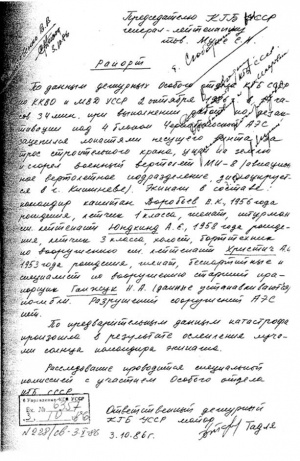 Председателю КГБ УССР
генерал-лейтенанту
тов. Муха С.Н.
Рапорт
По данным дежурных Особого отдела КГБ СССР
по ККВО и МВД УССР 2 октября
34 мин. при выполнении работ по дезак-
тивации над 4 блоком Чернобыльской АЭС
зацепился лопастями несущего винта за
трос строительного крана, упал на землю
и сгорел военный вертолет МИ-8 (авиацион-
ное вертолетное подразделение, дислоцирует-
ся в г. Кишиневе). Экипаж в составе:
командир капитан Воробьев В.К., 1956 года
рождения, летчик 1 класса, женат, штурман
ст. лейтенант Юнгкинд А.Е., 1958 года рожде-
ния, летчик 3 класса, холост, борттехник
по вооружению ст. лейтенант Христич Л.
1953 года рождения, женат, беспартийные и
специалист по вооружению старший пра-
порщик Ганжук Н.А. (данные устанавливаются)
погибли. Разрушений сооружений АЭС
нет.
По предварительным данным катастрофа
произошла в результате ослепления луча-
ми солнца командира экипажа.
Расследование проводится специальной
комиссией с участием Особого отдела
КГБ СССР.
Ответственный дежурный
КГБ УССР майор
3.10.86г.